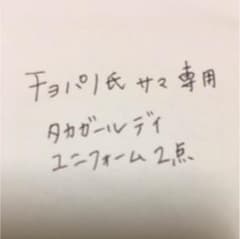 チョパリ氏 サマ 専用
タカガールデイ
ユニフォーム 2点